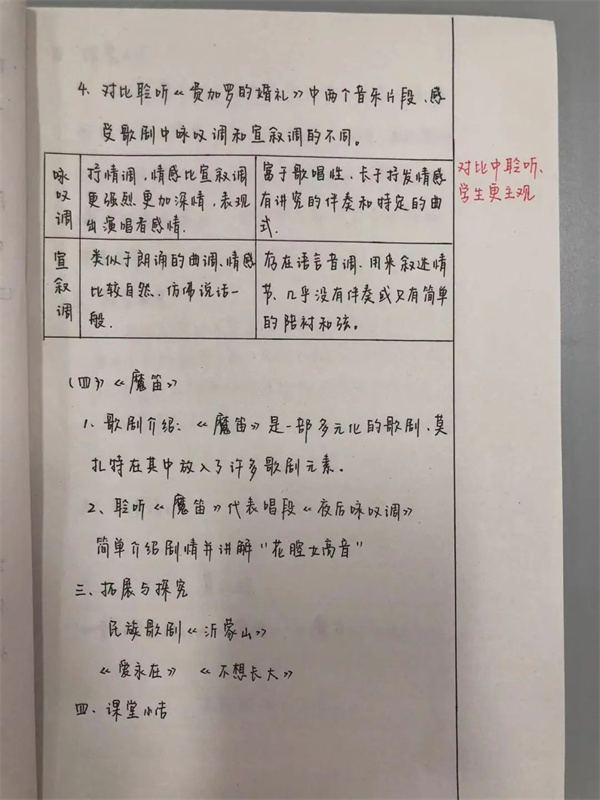 4. 对比聆听《费加罗的婚礼》中两个音乐片段、感
受歌剧中咏叹调和宣叙调的不同。
咏叹调
抒情调，情感比宣叙调
更强烈.更加深情，表现
出演唱者感情.
富于歌唱性，长于抒发情感
有讲究的伴奏和特定的曲
式.
宣叙调
类似于朗诵的曲调、情感
比较自然.仿佛说话一
般.
存在语言音调.用来叙述情
节、几乎没有伴奏或只有简单
的陪衬和弦。
对比中聆听、
学生更主观
(四)《魔笛》
1. 歌剧介绍：《魔笛》是一部多元化的歌剧.莫
扎特在其中放入了许多歌剧元素.
2、聆听《魔笛》代表唱段《夜后咏叹调》
简单介绍剧情并讲解"花腔女高音"
三、拓展与探究
民族歌剧《沂蒙山》
《爱永在》 《不想长大》
四.课堂小结